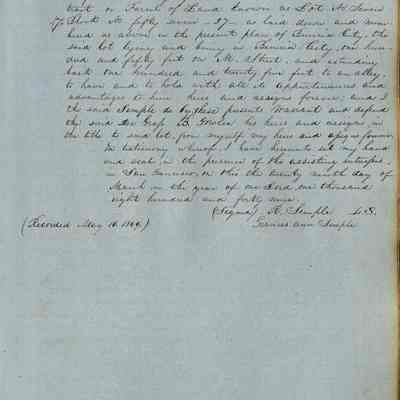 tract or Parcel of Land known as Lot No Seven
(7) Block No fifty seven - 57 - as laid down and num-
bered as above in the present plan of Benicia City, the
said lot lying and being in Benicia City, one hun-
dred and fifty feet on M. Street, and extending
back one hundred and twenty five feet to an alley,
to have and to hold with all its appurtenances and
advantages to him heirs and assigns forever, and
the said Semple do by these presents Warrant and defend
the said B. his heirs and assigns in
the title to said lot, from myself my heirs and assigns forever,
In testimony whereof, I have hereunto set my hand
and seal, in the presence of the assisting witnesses,
in San Francisco, on this the twenty ninth day of
March in the year of our Lord one thousand
eight hundred and forty nine.
(Signed) R. Semple L.S.
(Recorded May 16. 1849.) Frances Ann Semple